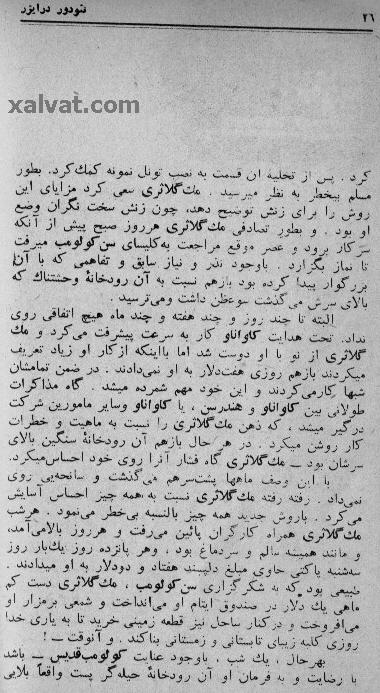 تئودور درایزر
٢٦
xalvat.com
کرد . پس از تخلیه آن قسمت به نصب تونل نمونه کمك کرد. بطور
مسلم بیخطر به نظر میرسید . مك‌گلاثری سعی کرد مزایای این
روش را برای زنش توضیح دهد، چون زنش سخت نگران وضع
او بود . و بطور تصادفی مك‌گلاثری هرروز صبح پیش از آنکه
سر کار برود و عصر موقع مراجعت به‌کلیسای سن‌کولومب میرفت
تا نماز بگزارد . باوجود نذر و نیاز سابق و تفاهمی که با آن
بزرگوار پیدا کرده بود بازهم نسبت به آن رودخانهٔ وحشتناك که
بالای سرش می‌گذشت سوءظن داشت ومی‌ترسید .
البته تا چند روز و چند هفته و چند ماه هیچ اتفاقی روی
نداد. تحت هدایت کاواناو کار به سرعت پیشرفت می‌کرد و مك
گلاثری از نو با او دوست شد اما بااینکه ازکار او زیاد تعریف
میکردند بازهم روزی هفت‌دلار به او نمی‌دادند . در ضمن تمامشان
شبها کارمی‌کردند و این خود مهم شمرده میشد . گاه مذاکرات
طولانی بین کاواناو و هندرسن ، یا کاواناو وسایر مامورین شرکت
درگیر میشد ، که ذهن مك‌گلاثری را نسبت به ماهیت و خطرات
کار روشن میکرد . در هر حال بازهم آن رودخانهٔ سنگین بالای
سرشان بود ــ مك‌گلاثری گاه فشار آنرا روی خود احساس‌میکرد.
با این وصف ماهها پشت‌سرهم می‌گذشت و سانحه‌یی روی
نمی‌داد . رفته رفته مك‌گلاثری نسبت به همه چیز احساس آسایش
می‌کرد . باروش جدید همه چیز بالنسبه بی‌خطر می‌نمود . هرشب
مك‌گلاثری همراه کارگران پائین می‌رفت و هرروز بالامی‌آمد،
و مانند همیشه سالم و سردماغ بود ، وهر پانزده روز یك‌بار روز
سه‌شنبه پاکتی حاوی مبلغ دلپسند هفتاد و دودلار به او میدادند .
طبیعی بود که به شکرگزاری سن‌کولومب ، مك‌گلاثری دست کم
ماهی یك دلار در صندوق ایتام او می‌انداخت و شمعی برمزار او
می‌افروخت و درکنار ساحل نیز قطعه زمینی خرید تا به یاری خدا
روزی کلبه زیبای تابستانی و زمستانی بناکند . و آنوقت ــ !
بهرحال ، یك شب ، باوجود عنایت کولومب‌قدیس ــ باشد
با رضایت و به فرمان او آن رودخانهٔ حیله‌گر پست واقعاً بلایی